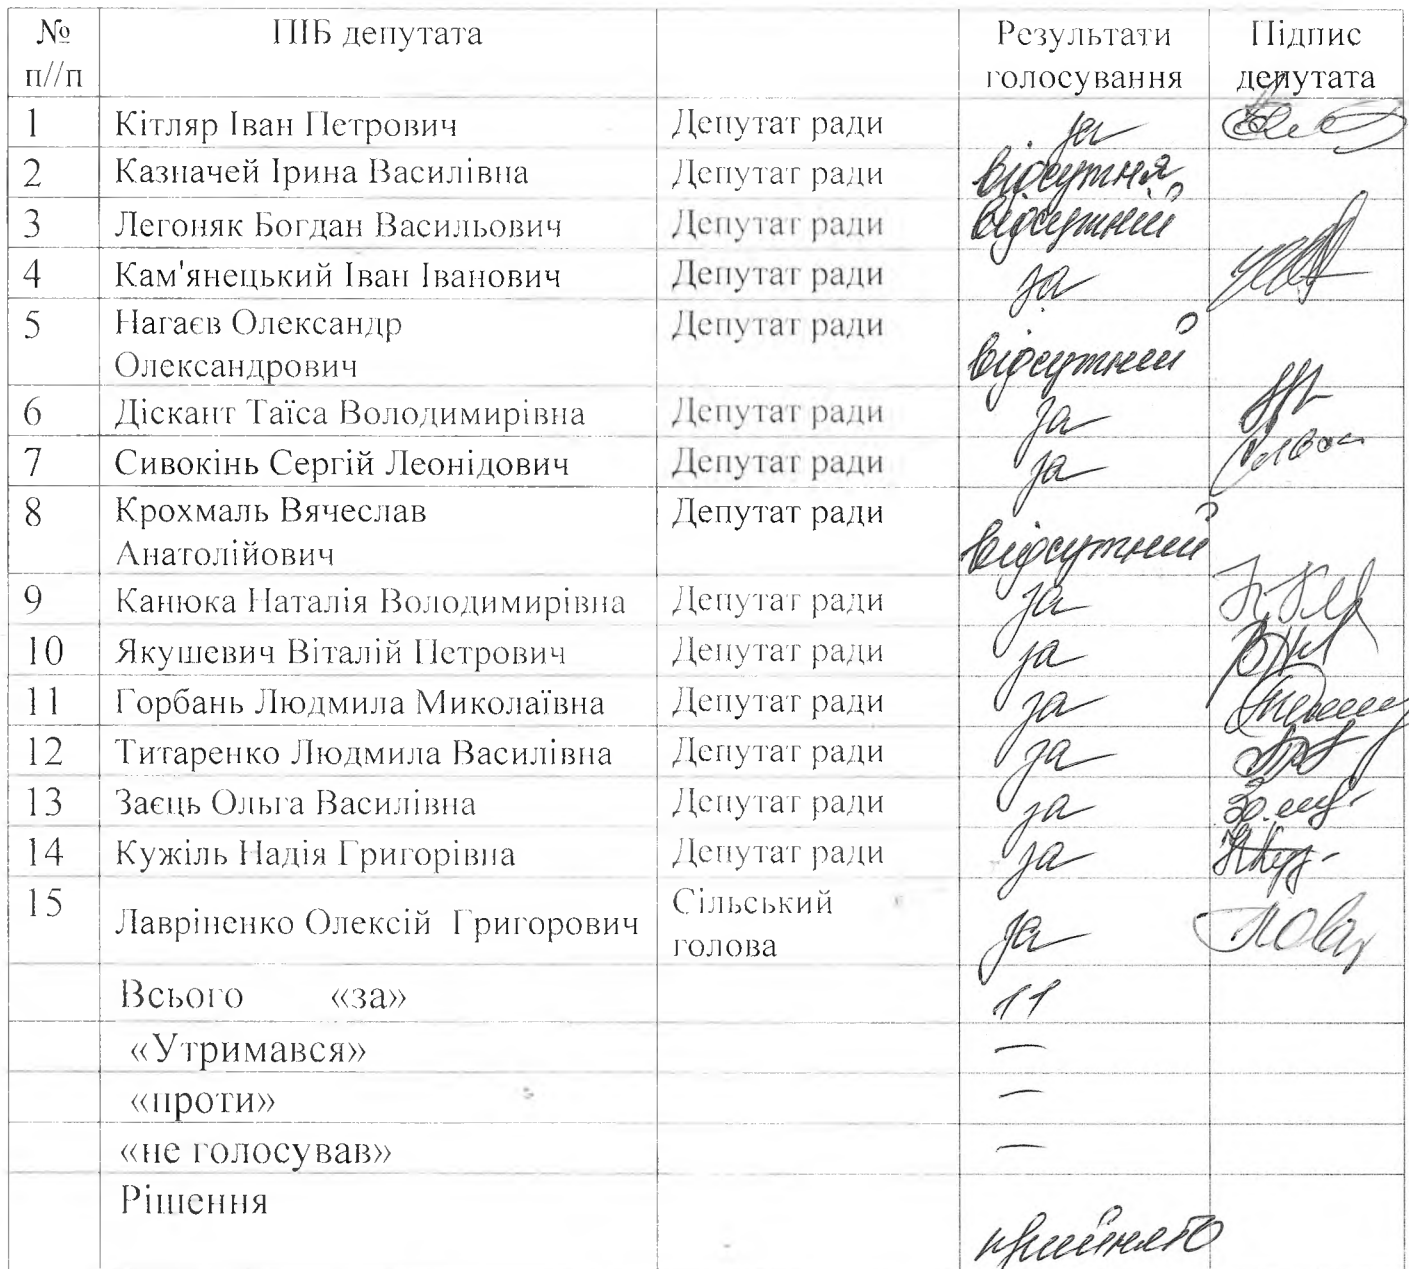 № ПІБ депутата Результати Підпис
п//п голосування депутата
1 Кітляр Іван Петрович Депутат ради за
2 Казначей Ірина Василівна Депутат ради відсутня
3 Легоняк Богдан Васильович Депутат ради відсутній
4 Кам'янецький Іван Іванович Депутат ради за
5 Нагаєв Олександр Депутат ради
Олександрович відсутній
6 Діскант Таїса Володимирівна Депутат ради за
7 Сивокінь Сергій Леонідович Депутат ради за
8 Крохмаль Вячеслав Депутат ради
Анатолійович відсутній
9 Канюка Наталія Володимирівна Депутат ради за
10 Якушевич Віталій Петрович Депутат ради за
11 Горбань Людмила Миколаївна Депутат ради за
12 Титаренко Людмила Василівна Депутат ради за
13 Заєць Ольга Василівна Депутат ради за
14 Кужіль Надія Григорівна Депутат ради за
15 Лавріненко Олексій Григорович Сільський
голова за
Всього «за» 11
«Утримався» —
«проти» —
«не голосував» —
Рішення
прийнято